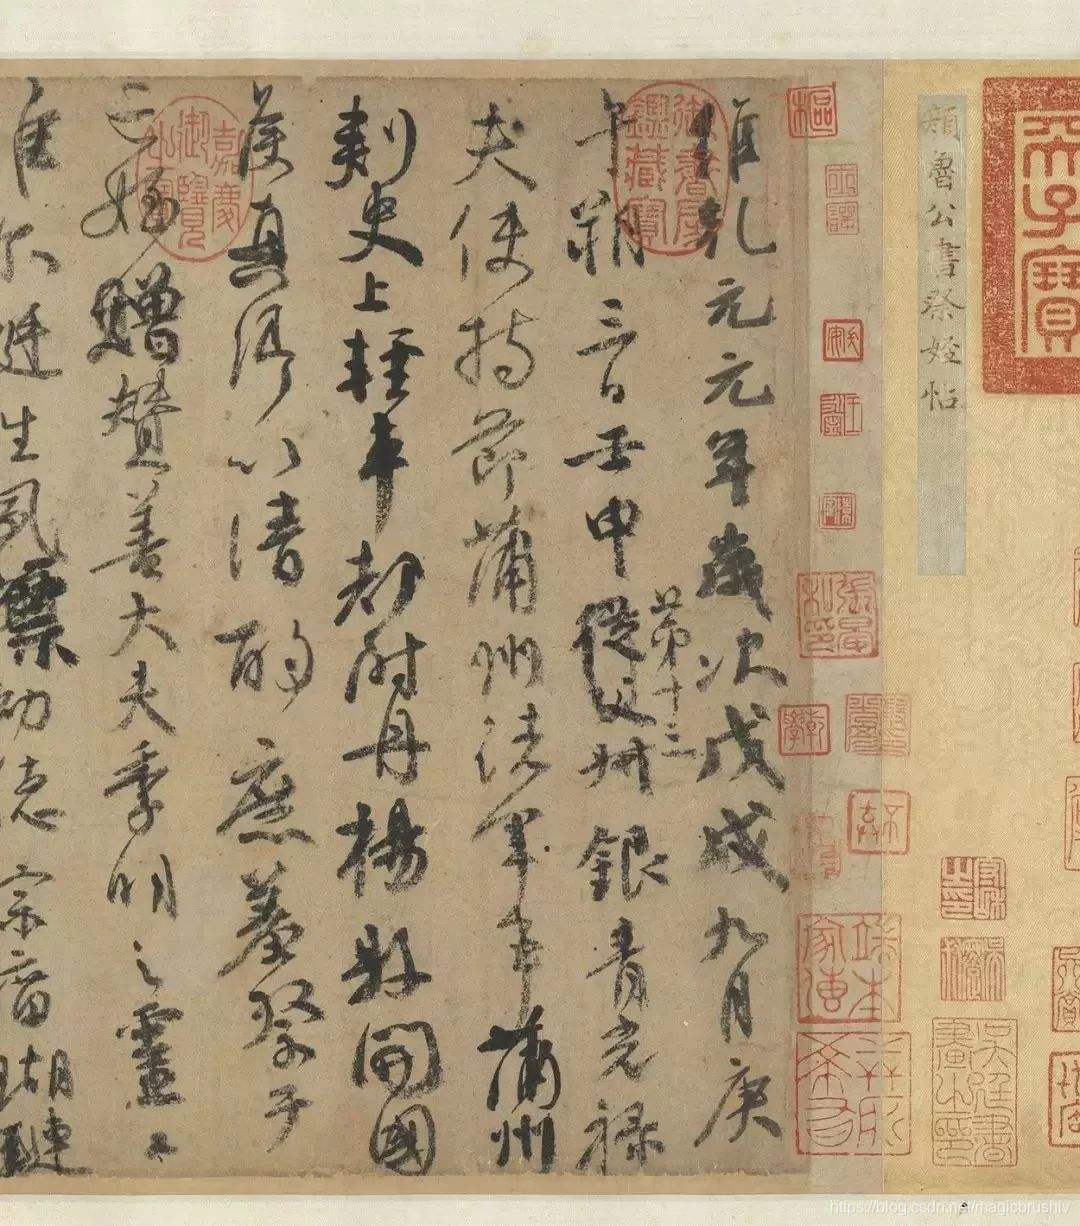 天子寶
顏魯公書祭姪帖
維乾元元年歲次戊戌九月庚
午朔三日壬申第十三從父叔銀青光祿
夫使持節蒲州諸軍事蒲州
刺史上輕車都尉丹楊縣開國
侯真卿以清酌庶羞祭于
亡姪贈贊善大夫季明之靈曰
惟爾挺生夙標幼德宗廟瑚璉
御書房鑑藏寶
嘉慶御覽之寶
https://blog.csdn.net/magicbrushlv